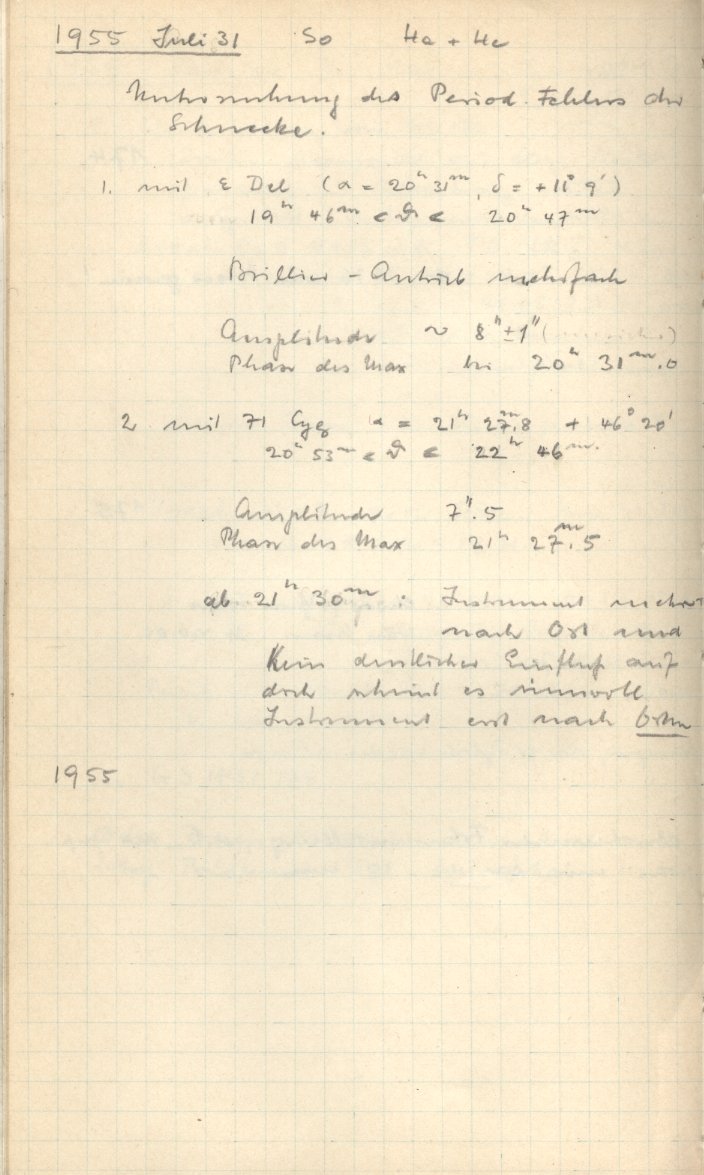 1955 Juli 31 So Ha + He
Untersuchung des Period. Fehlers der
Schnecke.
1. mit ε Del (α = 20h 31m, δ = +11° 9')
19h 46m < ϑ < 20h 47m
Antrieb mehrfach
Amplitude ~ 8" ± 1"
Phase des Max bei 20h 31m.0
2 mit 71 Cyg α = 21h 27m.8 + 46° 20'
20h 53m < ϑ < 22h 46m.
Amplitude 7".5
Phase des Max 21h 27m.5
ab 21h 30m : Instrument
nach Ost und
Kein deutlicher Einfluß auf
doch scheint es sinnvoll
Instrument erst nach
1955